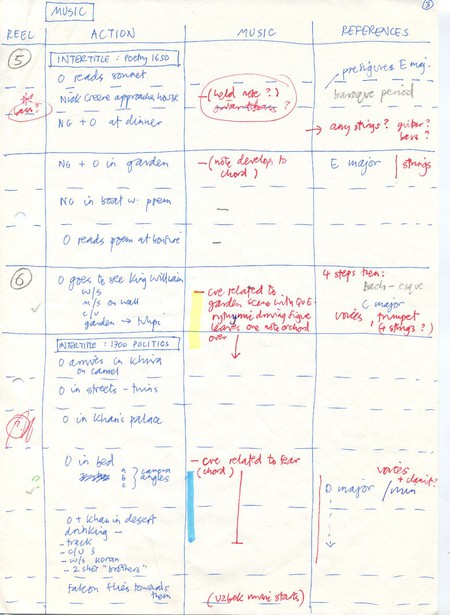 MUSIC
3
REEL
ACTION
MUSIC
REFERENCES
5
INTERTITLE : Poetry 1650
O reads sonnet
prefigures E maj.
Nick Greene approaches house
(held note ?)
?
baroque period
bass?
NG + O at dinner
any strings? guitar?
bass?
NG + O in garden
(note develop to
chord)
E major
strings
NG in boat w. poem
O reads poem at bonfire
6
O goes to see King William
w/s
m/s on wall
c/u
garden → tulips
- cue related to
garden scene with QuE-
rythymic driving figure
leaves one note or chord
over
4 steps then:
Bach-esque
C major
voices, trumpet
(+ strings?)
INTERTITLE : 1700 POLITICS
O arrives in Khiva
on camel
O in streets - twins
O in Khan's palace
O in bed
A
B
C
camera
angles
- cue related to fear
(chord)
voices
+ clarinet?
D major / min
O + Khan in desert
drinking -
- track
- c/u s
- w/s Koran
- 2 shot "brothers"
falcon flies towards
them
(uzbek music starts)